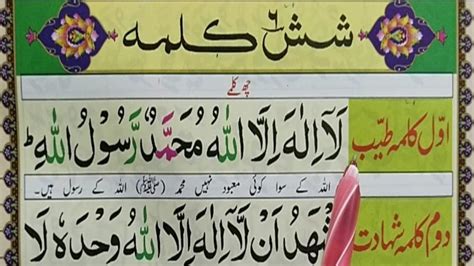 شش ۶ کلمہ
چھ کلمے
اوّل کلمہ طیّب لَاۤ اِلٰهَ اِلَّا اللّٰهُ مُحَمَّدٌ رَّسُوْلُ اللّٰهِ ؕ
اللہ کے سوا کوئی معبود نہیں محمد (ﷺ) اللہ کے رسول ہیں۔
دوم کلمہ شہادت شْهَدُ اَنْ لَّاۤ اِلٰهَ اِلَّا اللّٰهُ وَحْدَهٗ لَا